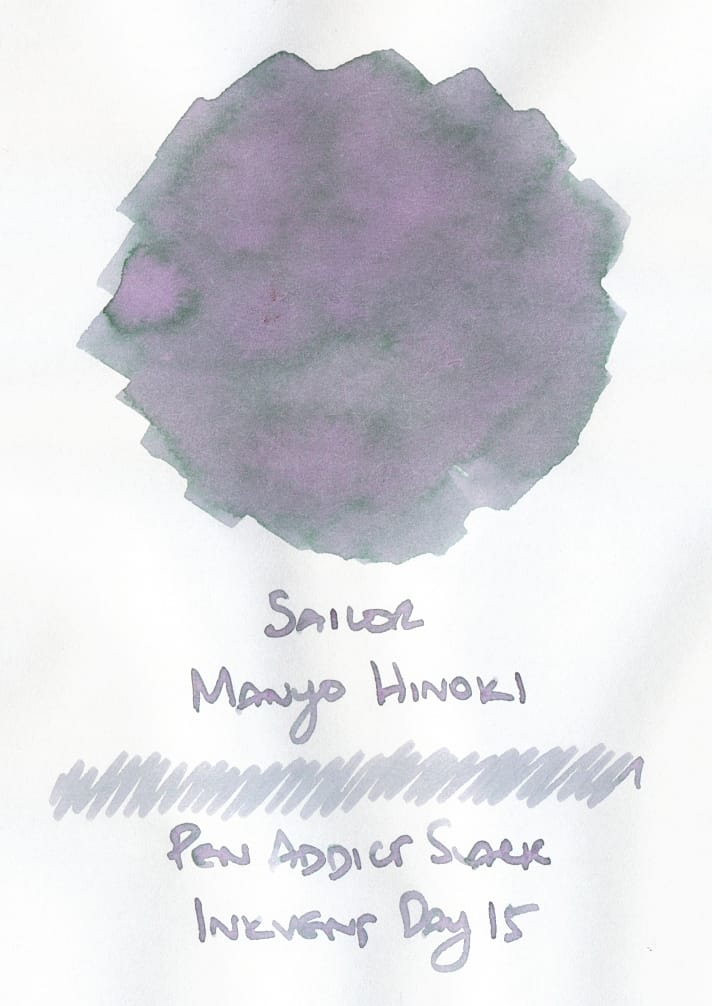 Sailor
Manyo Hinoki
Pen Addict Slack
Inkvent Day 15